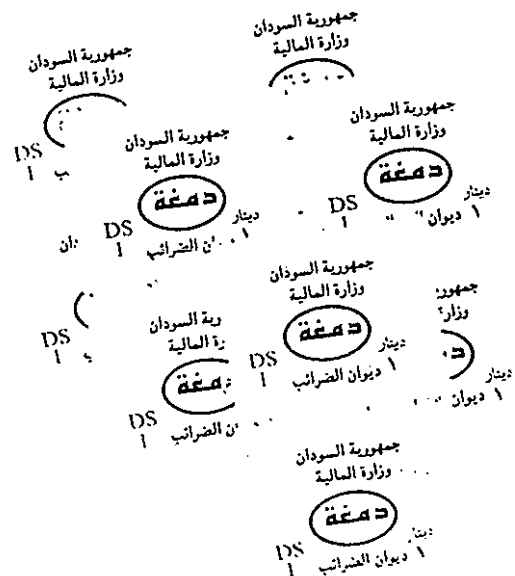 جمهورية السودان
وزارة المالية
جمهورية السودان
وزارة المالية
DS
1
جمهورية السودان
وزارة المالية
دمغة
دينار
DS
1
ن الضرائب ١
جمهورية السودان
وزارة المالية
دمغة
دينار
DS
1
ديوان ١
DS
1
رية السودان
رة المالية
دمغة
DS
1
ن الضرائب
جمهورية السودان
وزارة المالية
دمغة
دينار
DS
1
ديوان الضرائب ١
جمهور
وزار
د
دينار
ديوان ١
جمهورية السودان
وزارة المالية
دمغة
DS
1
ديوان الضرائب ١